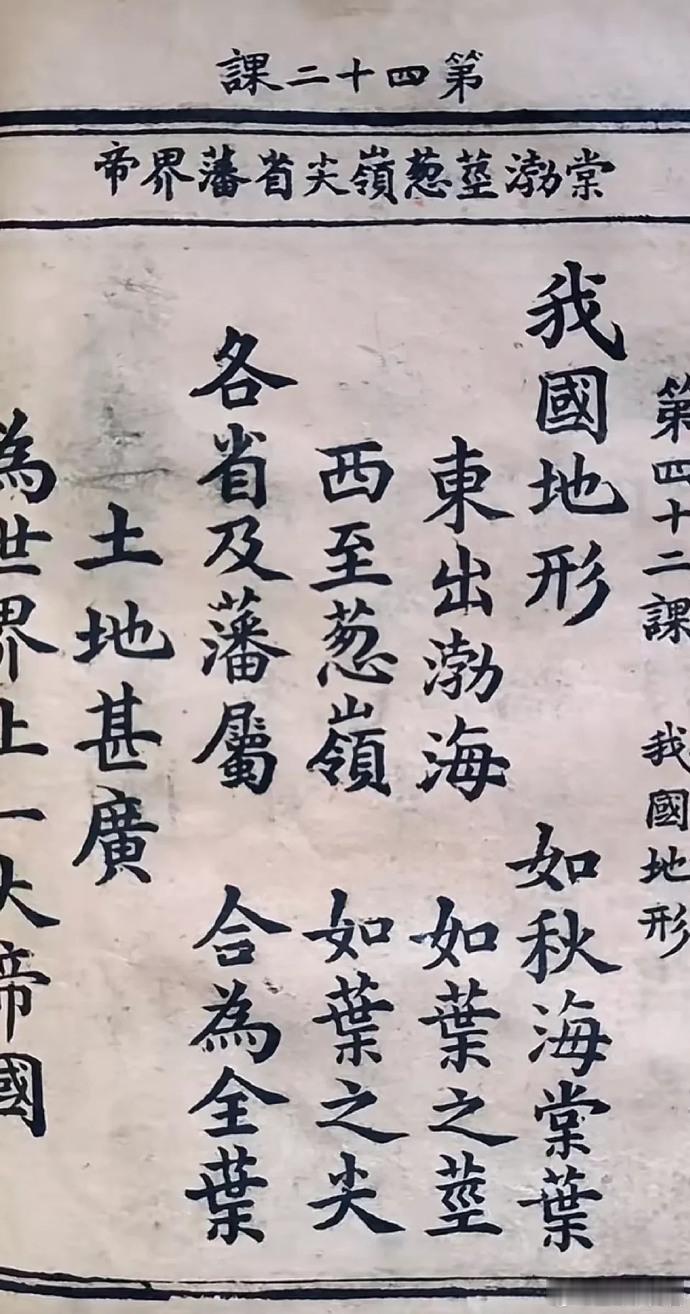 第四十二課
棠渤莖葱嶺尖省藩界帝
第四十二課 我國地形
我國地形 如秋海棠葉
東出渤海 如葉之莖
西至葱嶺 如葉之尖
各省及藩屬 合為全葉
土地甚廣
為世界上一大帝國